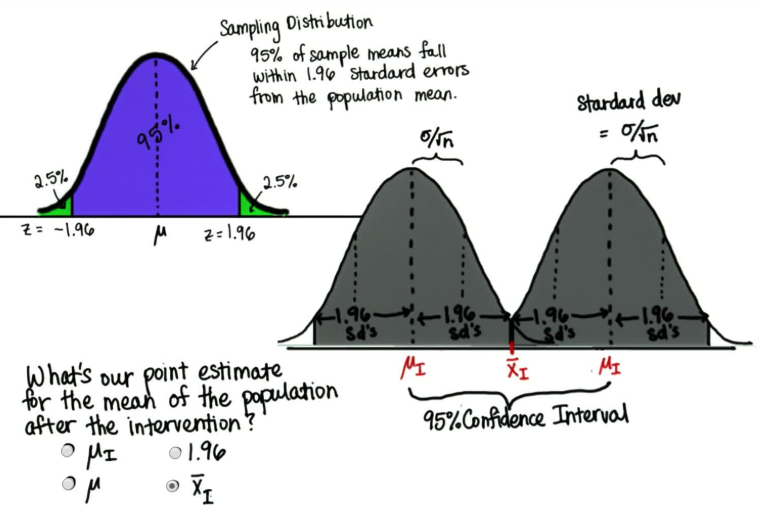 Sampling Distribution
95% of sample means fall
within 1.96 standard errors
from the population mean.
95%
2.5%
2.5%
z = -1.96
μ
z=1.96
σ/√n
Standard dev
= σ/√n
1.96
sd's
1.96
sd's
1.96
sd's
1.96
sd's
μI
x̄I
μI
95% Confidence Interval
What's our point estimate
for the mean of the population
after the intervention?
μI
1.96
μ
x̄I